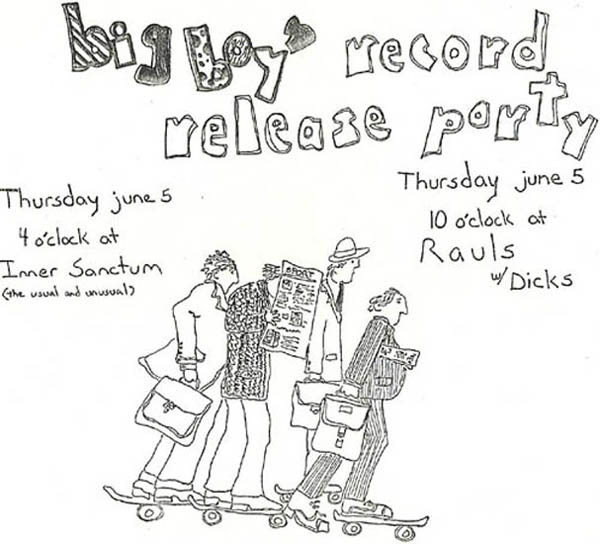 big boy' record
release party
Thursday june 5
4 o'clock at
Inner Sanctum
(the usual and unusual)
Thursday june 5
10 o'clock at
Rauls
w/ Dicks
SPORT